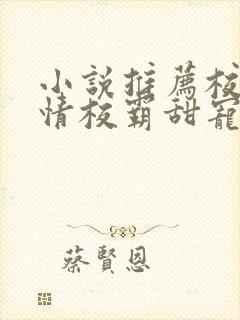 小說推薦校
情校霸甜寵
蔡賢恩